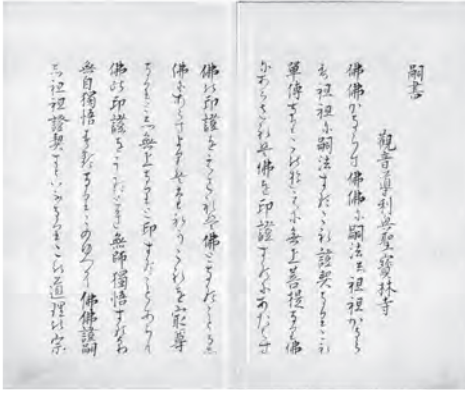 嗣書
觀音導利興聖寶林寺
佛佛かならす佛佛に嗣法し祖祖かなら
す祖祖に嗣法するこれ證契なりこれ
單傳なりこのゆゑに無上菩提なり佛
にあらされは佛を印證するにあたはす
佛の印證をえされは佛となることなし
佛にあらすよりはたれかこれを最尊
なりとし無上なりと印することあらん
佛の印證をうるとき無師獨悟するなり
無自獨悟するなりこのゆゑに佛佛證嗣
し祖祖證契すといふなりこの道理の宗